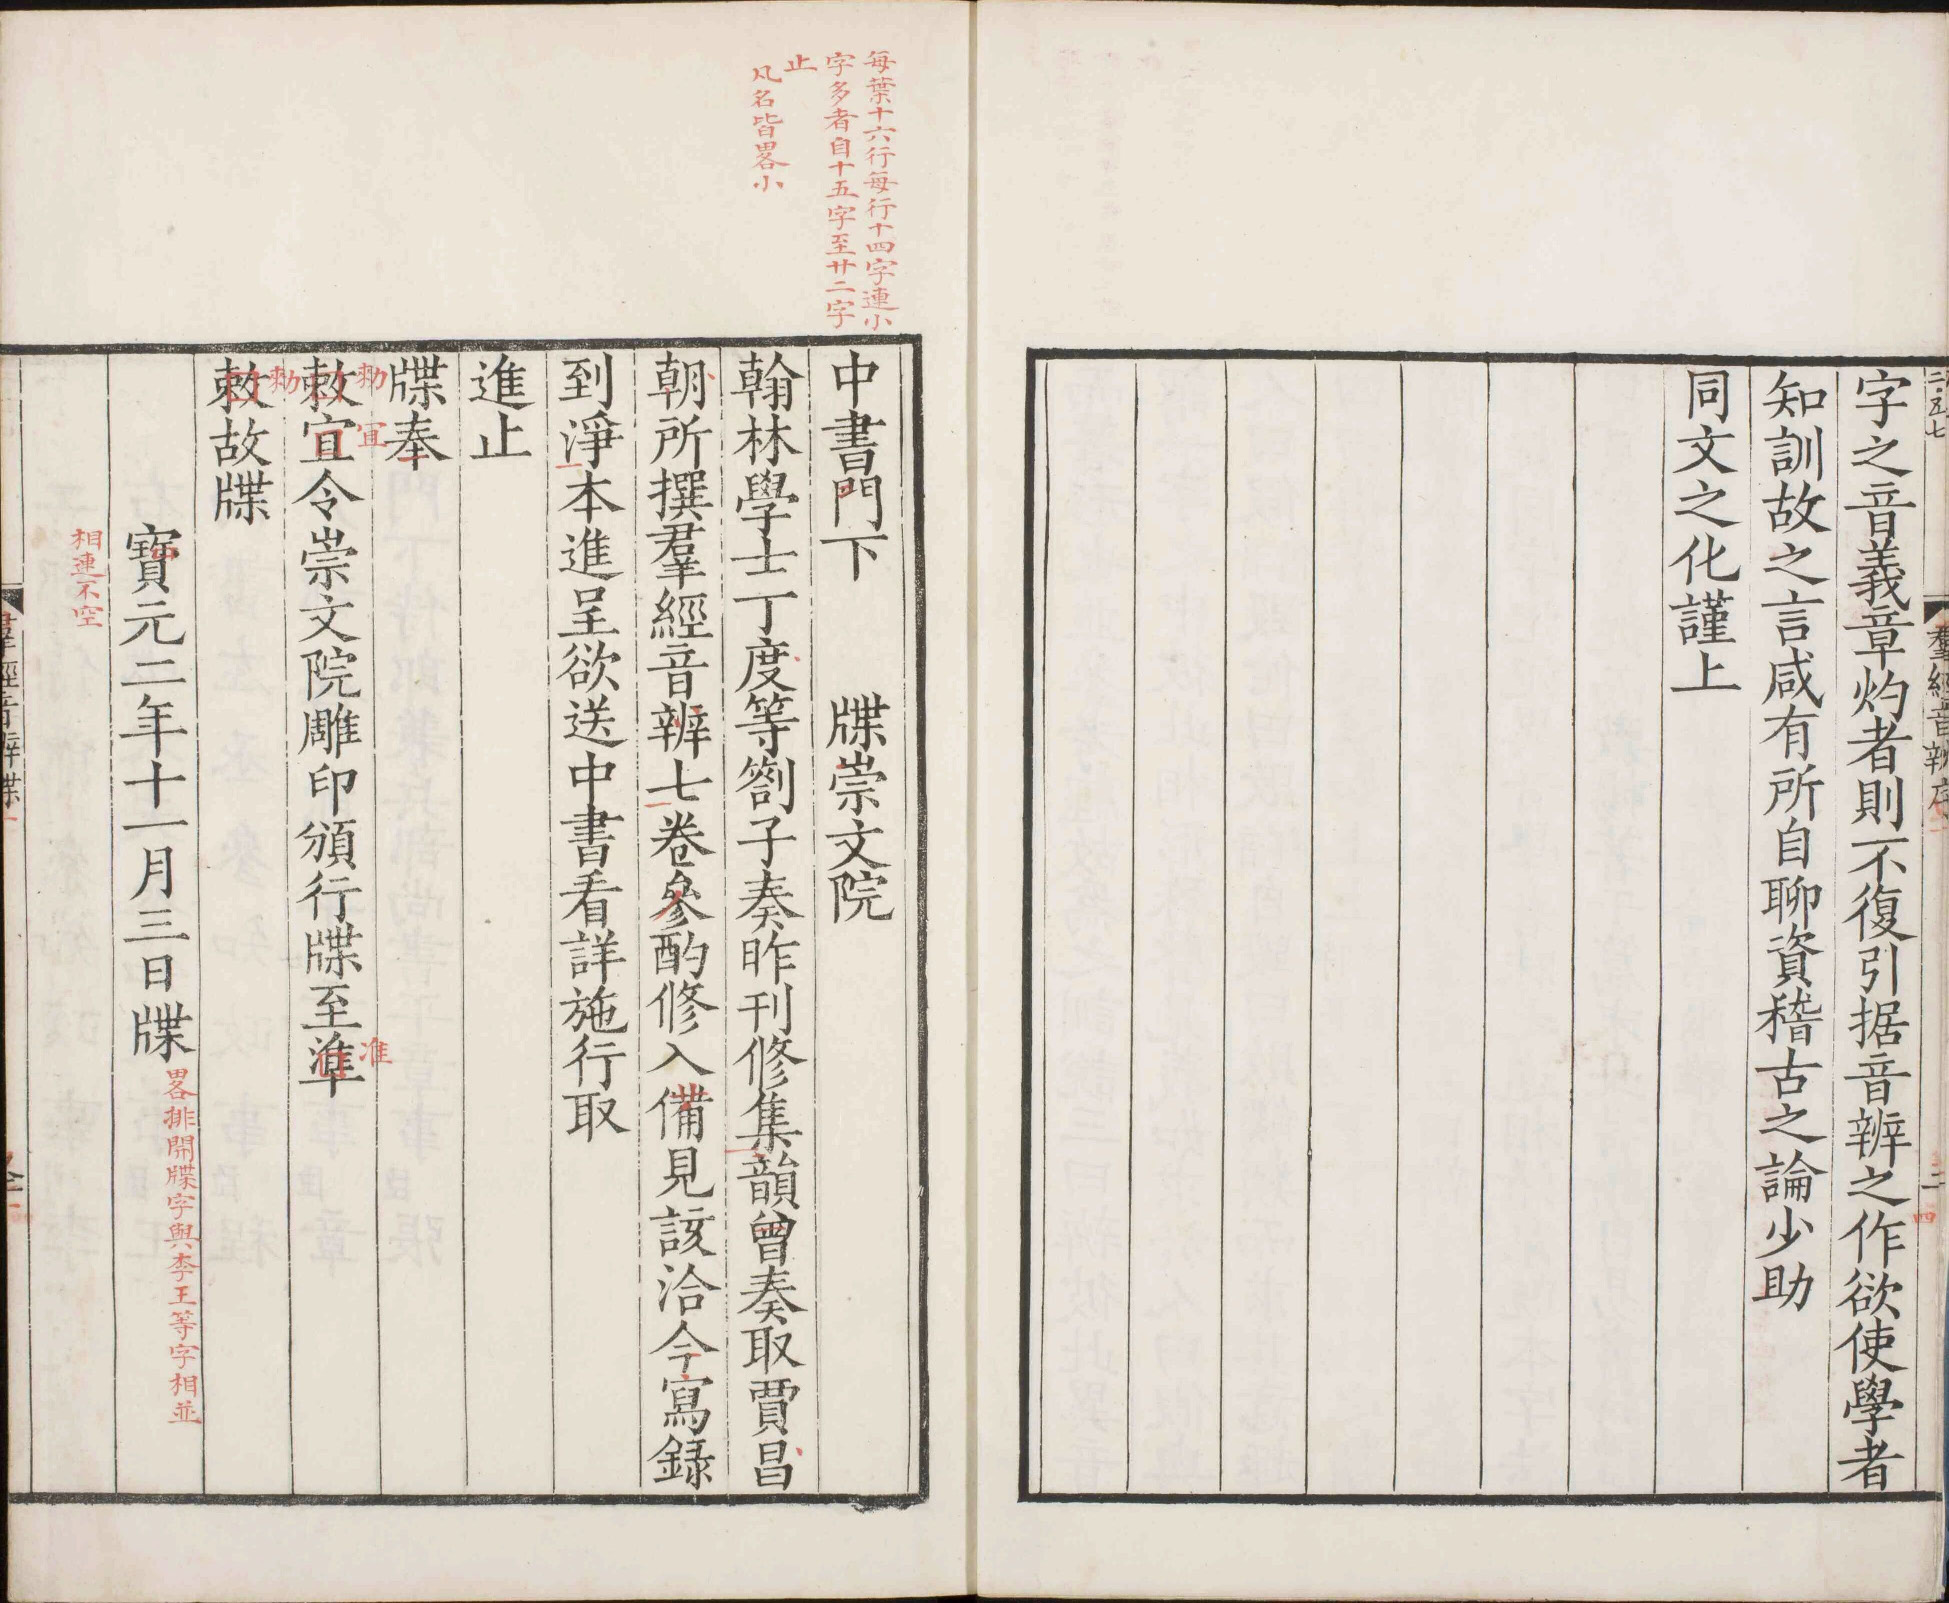 字之音義章灼者則不復引据音辨之作欲使學者
知訓故之言咸有所自聊資稽古之論少助
同文之化謹上
每葉十六行每行十四字連小
字多者自十五字至廿二字
止
凡名皆畧小
中書門下　　牒崇文院
翰林學士丁度等劄子奏昨刊修集韻曾奏取賈昌
朝所撰羣經音辨七卷參酌修入備見該洽今寫録
到淨本進呈欲送中書看詳施行取
進止
牒奉
勑 宜 准
敕宜令崇文院雕印頒行牒至準
勑
敕故牒
寶元二年十一月三日牒
畧排開牒字與李王等字相並
相連不空